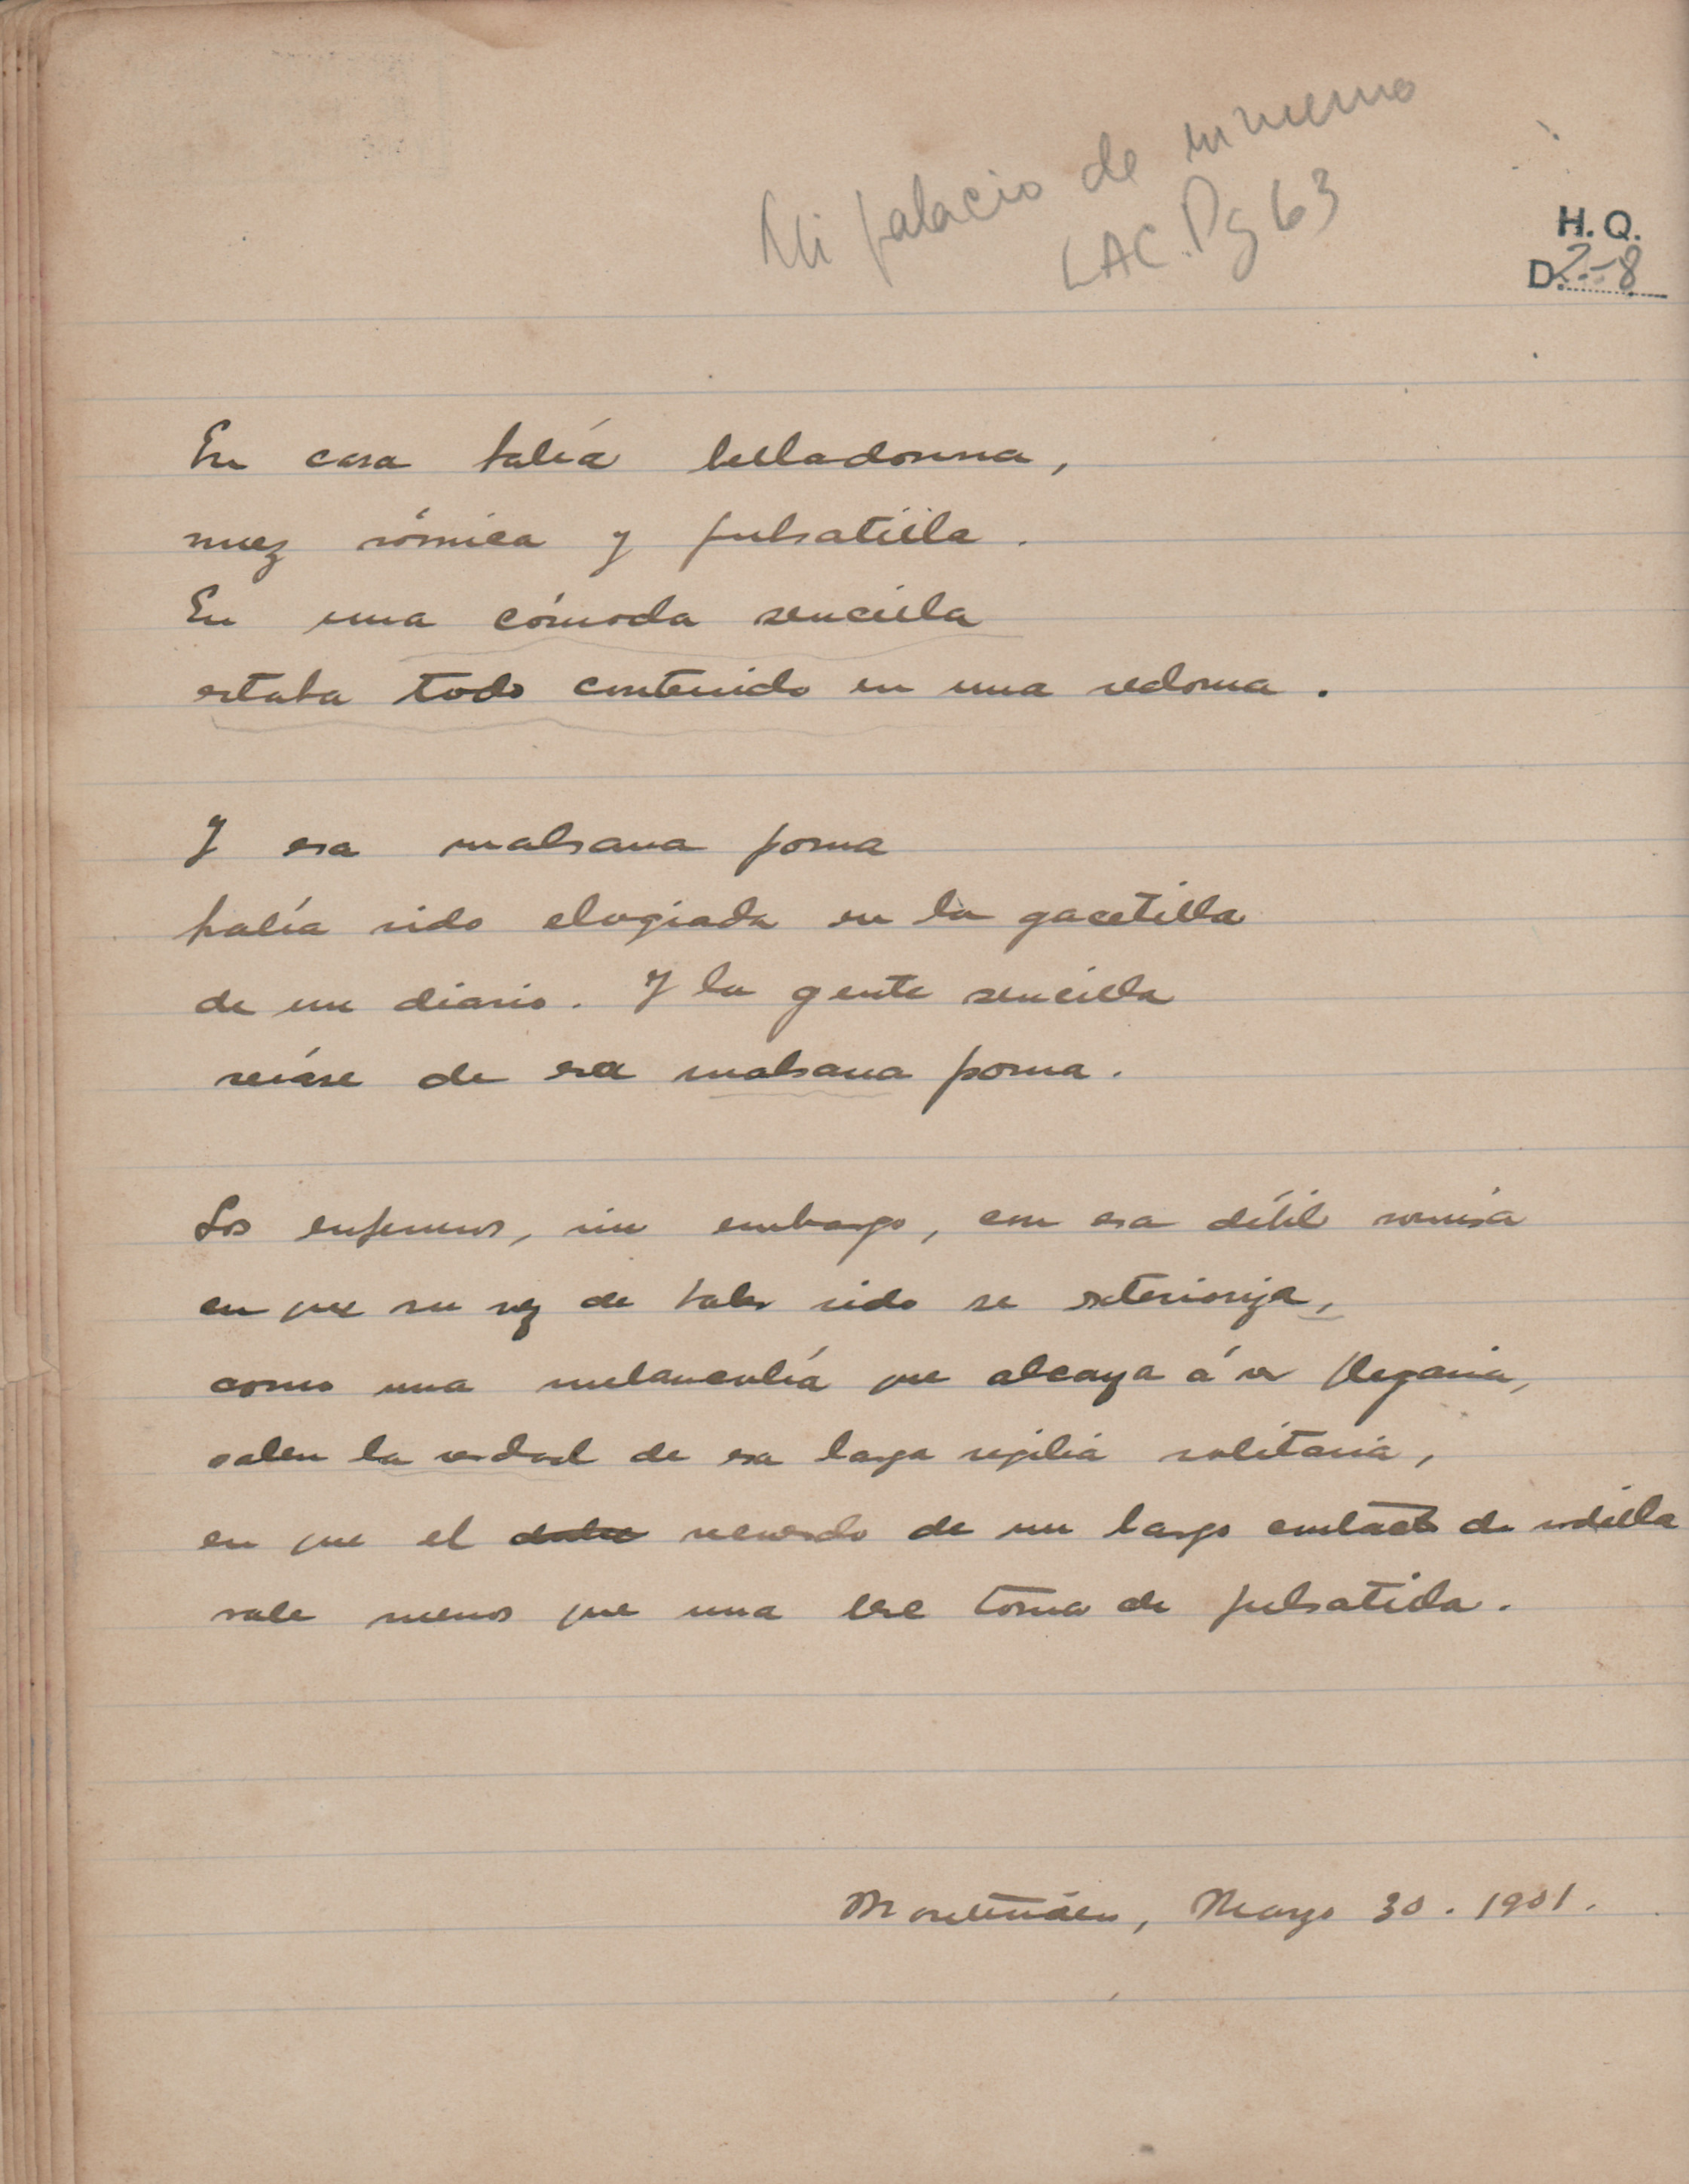 Mi palacio de invierno
LAC. Pg 63
H. Q.
D. 2-8
En casa había belladonna,
nuez vómica y pulsatilla.
En una cómoda sencilla
estaba todo contenido en una redoma.
Y esa malsana poma
había sido elogiada en la gacetilla
de un diario. Y la gente sencilla
reíase de esa malsana poma.
Los enfermos, sin embargo, con esa débil sonrisa
en que su vez de haber sido se exterioriza,
como una melancolía que alcanza á ser plegaria,
saben la verdad de esa larga vigilia solitaria,
en que el recuerdo de un largo contacto de rodilla
vale menos que una leve toma de pulsatilla.
Montevideo, Mayo 30. 1901.